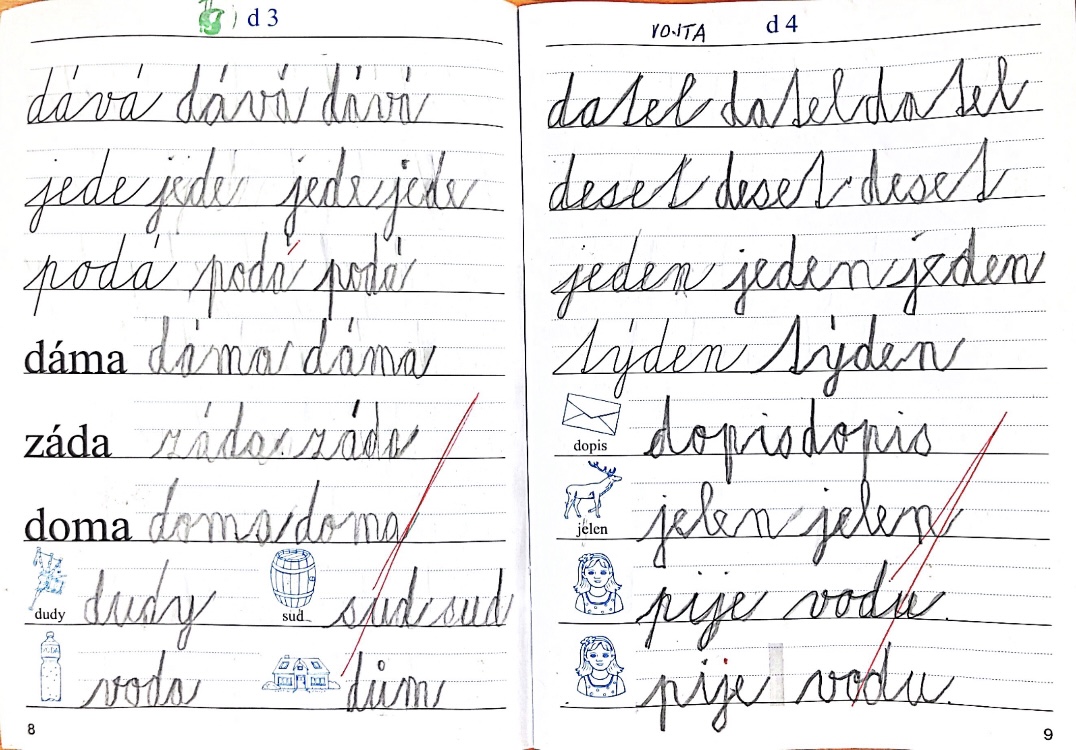 d 3
dává dává dává
jede jede jede jede
podá podá podá
dáma dáma dáma
záda záda záda
doma doma doma
dudy dudy sud sud sud
voda dům
8
VOJTA d 4
datel datel datel
deset deset deset
jeden jeden jeden
týden týden
dopis dopis dopis
jelen jelen jelen
pije vodu.
pije vodu.
9